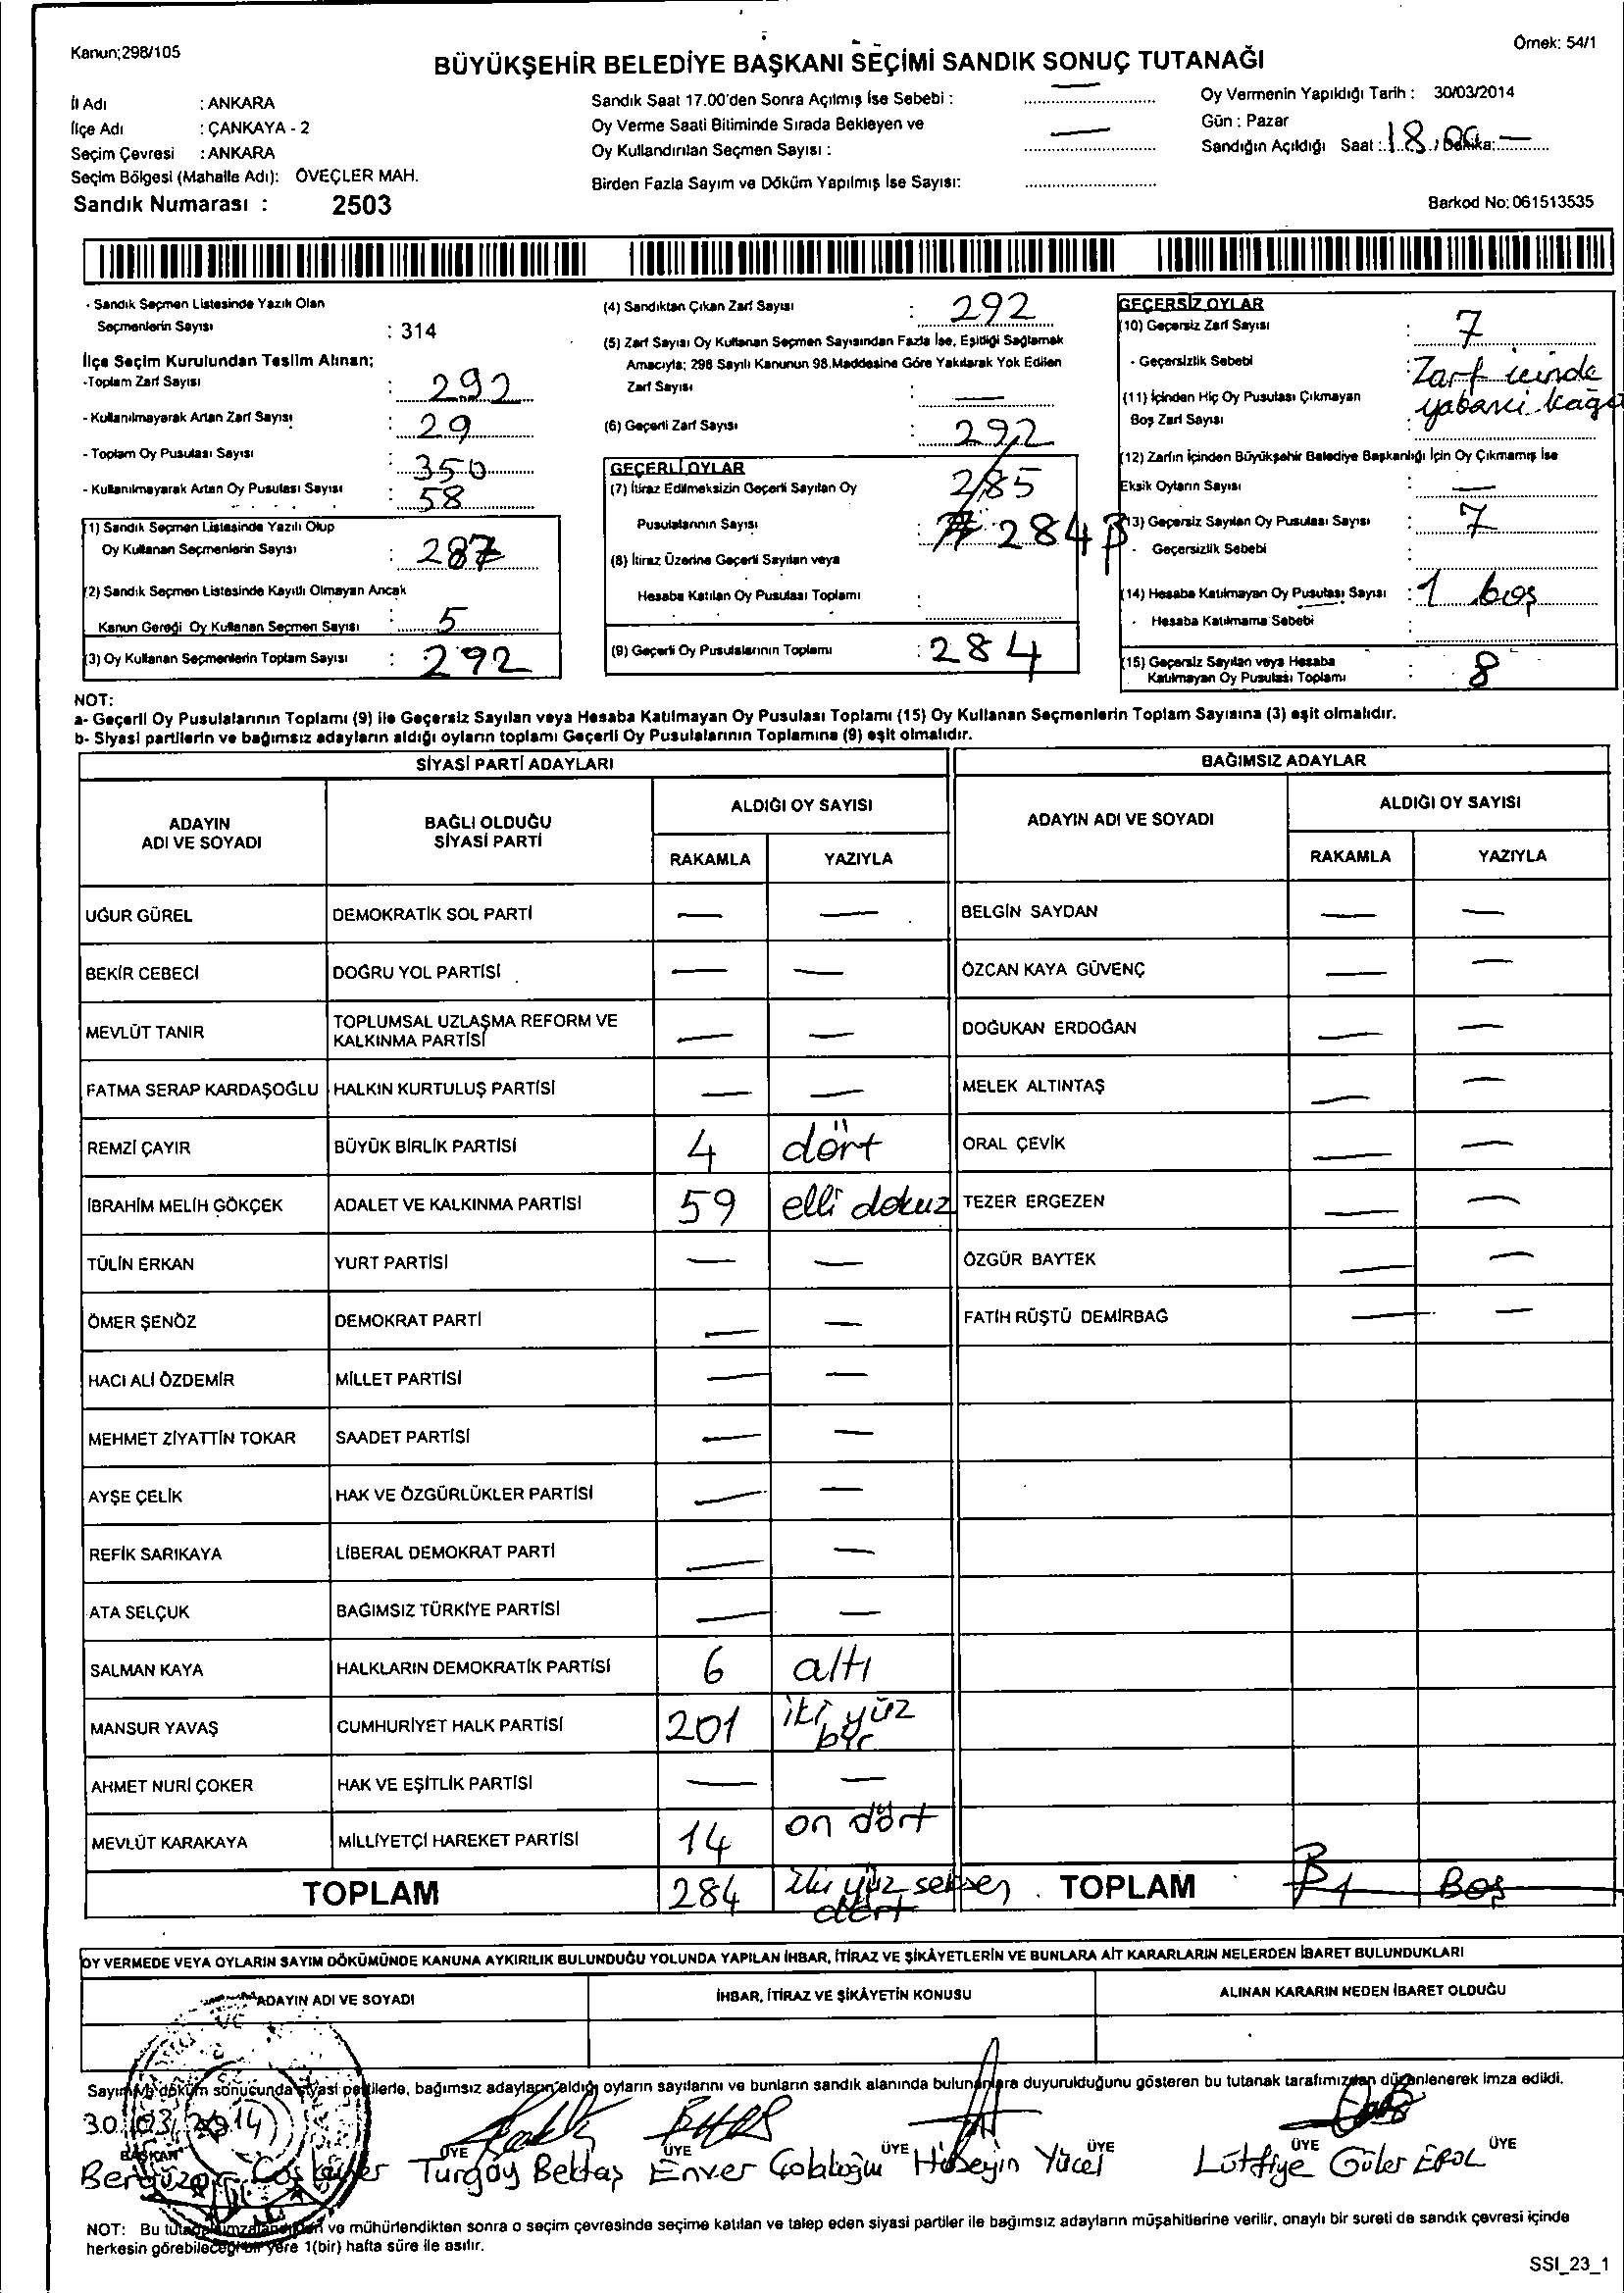 Kanun;298/105
Örnek: 54/1
BÜYÜKŞEHİR BELEDİYE BAŞKANI SEÇİMİ SANDIK SONUÇ TUTANAĞI
İl Adı : ANKARA
İlçe Adı : ÇANKAYA - 2
Seçim Çevresi : ANKARA
Seçim Bölgesi (Mahalle Adı): ÖVEÇLER MAH.
Sandık Numarası : 2503
Sandık Saat 17.00'den Sonra Açılmış İse Sebebi : —
Oy Verme Saati Bitiminde Sırada Bekleyen ve
Oy Kullandırılan Seçmen Sayısı : —
Birden Fazla Sayım ve Döküm Yapılmış İse Sayısı:
Oy Vermenin Yapıldığı Tarih : 30/03/2014
Gün : Pazar
Sandığın Açıldığı Saat : 18.00 Dakika: —
Barkod No: 061513535
- Sandık Seçmen Listesinde Yazılı Olan
Seçmenlerin Sayısı : 314
İlçe Seçim Kurulundan Teslim Alınan;
-Toplam Zarf Sayısı : 292
- Kullanılmayarak Artan Zarf Sayısı : 29
- Toplam Oy Pusulası Sayısı : 350
- Kullanılmayarak Artan Oy Pusulası Sayısı : 58
(1) Sandık Seçmen Listesinde Yazılı Olup
Oy Kullanan Seçmenlerin Sayısı : 287
(2) Sandık Seçmen Listesinde Kayıtlı Olmayan Ancak
Kanun Gereği Oy Kullanan Seçmen Sayısı : 5
(3) Oy Kullanan Seçmenlerin Toplam Sayısı : 292
(4) Sandıktan Çıkan Zarf Sayısı : 292
(5) Zarf Sayısı Oy Kullanan Seçmen Sayısından Fazla İse, Eşitliği Sağlamak
Amacıyla; 298 Sayılı Kanunun 98.Maddesine Göre Yakılarak Yok Edilen
Zarf Sayısı : —
(6) Geçerli Zarf Sayısı : 292
GEÇERLİ OYLAR
(7) İtiraz Edilmeksizin Geçerli Sayılan Oy 285
Pusulalarının Sayısı : 284
(8) İtiraz Üzerine Geçerli Sayılan veya
Hesaba Katılan Oy Pusulası Toplamı :
(9) Geçerli Oy Pusulalarının Toplamı : 284
GEÇERSİZ OYLAR
(10) Geçersiz Zarf Sayısı : 7
- Geçersizlik Sebebi : Zarf içinde
yabancı kağıt
(11) İçinden Hiç Oy Pusulası Çıkmayan
Boş Zarf Sayısı :
(12) Zarfın İçinden Büyükşehir Belediye Başkanlığı İçin Oy Çıkmamış İse
Eksik Oyların Sayısı : —
(13) Geçersiz Sayılan Oy Pusulası Sayısı : 7
- Geçersizlik Sebebi :
(14) Hesaba Katılmayan Oy Pusulası Sayısı : 1 boş
- Hesaba Katılmama Sebebi :
(15) Geçersiz Sayılan veya Hesaba
Katılmayan Oy Pusulası Toplamı : 8
NOT:
a- Geçerli Oy Pusulalarının Toplamı (9) ile Geçersiz Sayılan veya Hesaba Katılmayan Oy Pusulası Toplamı (15) Oy Kullanan Seçmenlerin Toplam Sayısına (3) eşit olmalıdır.
b- Siyasi partilerin ve bağımsız adayların aldığı oyların toplamı Geçerli Oy Pusulalarının Toplamına (9) eşit olmalıdır.
SİYASİ PARTİ ADAYLARI BAĞIMSIZ ADAYLAR
ADAYIN
ADI VE SOYADI
BAĞLI OLDUĞU
SİYASİ PARTİ
ALDIĞI OY SAYISI
RAKAMLA YAZIYLA
ADAYIN ADI VE SOYADI
ALDIĞI OY SAYISI
RAKAMLA YAZIYLA
UĞUR GÜREL DEMOKRATİK SOL PARTİ — — BELGİN SAYDAN — —
BEKİR CEBECİ DOĞRU YOL PARTİSİ — — ÖZCAN KAYA GÜVENÇ — —
MEVLÜT TANIR TOPLUMSAL UZLAŞMA REFORM VE
KALKINMA PARTİSİ — — DOĞUKAN ERDOĞAN — —
FATMA SERAP KARDAŞOĞLU HALKIN KURTULUŞ PARTİSİ — — MELEK ALTINTAŞ — —
REMZİ ÇAYIR BÜYÜK BİRLİK PARTİSİ 4 dört ORAL ÇEVİK — —
İBRAHİM MELİH GÖKÇEK ADALET VE KALKINMA PARTİSİ 59 elli dokuz TEZER ERGEZEN — —
TÜLİN ERKAN YURT PARTİSİ — — ÖZGÜR BAYTEK — —
ÖMER ŞENÖZ DEMOKRAT PARTİ — — FATİH RÜŞTÜ DEMİRBAĞ — —
HACI ALİ ÖZDEMİR MİLLET PARTİSİ — —
MEHMET ZİYATTİN TOKAR SAADET PARTİSİ — —
AYŞE ÇELİK HAK VE ÖZGÜRLÜKLER PARTİSİ — —
REFİK SARIKAYA LİBERAL DEMOKRAT PARTİ — —
ATA SELÇUK BAĞIMSIZ TÜRKİYE PARTİSİ — —
SALMAN KAYA HALKLARIN DEMOKRATİK PARTİSİ 6 altı
MANSUR YAVAŞ CUMHURİYET HALK PARTİSİ 201 iki yüz
bir
AHMET NURİ ÇOKER HAK VE EŞİTLİK PARTİSİ — —
MEVLÜT KARAKAYA MİLLİYETÇİ HAREKET PARTİSİ 14 on dört
TOPLAM 284 iki yüz seksen
dört
TOPLAM 1 Boş
OY VERMEDE VEYA OYLARIN SAYIM DÖKÜMÜNDE KANUNA AYKIRILIK BULUNDUĞU YOLUNDA YAPILAN İHBAR, İTİRAZ VE ŞİKÂYETLERİN VE BUNLARA AİT KARARLARIN NELERDEN İBARET BULUNDUKLARI
ADAYIN ADI VE SOYADI İHBAR, İTİRAZ VE ŞİKÂYETİN KONUSU ALINAN KARARIN NEDEN İBARET OLDUĞU
Sayım ve döküm sonucunda siyasi partilerle, bağımsız adayların aldığı oyların sayılarını ve bunların sandık alanında bulunanlara duyurulduğunu gösteren bu tutanak tarafımızdan düzenlenerek imza edildi.
30.03.2014
BAŞKAN ÜYE ÜYE ÜYE ÜYE ÜYE ÜYE
Turgay Bektaş Enver Hüseyin Yücel Lütfiye Güler EROL
NOT: Bu tutanak imzalandıktan ve mühürlendikten sonra o seçim çevresinde seçime katılan ve talep eden siyasi partiler ile bağımsız adayların müşahitlerine verilir, onaylı bir sureti de sandık çevresi içinde
herkesin görebileceği bir yere 1(bir) hafta süre ile asılır.
SSI_23_1